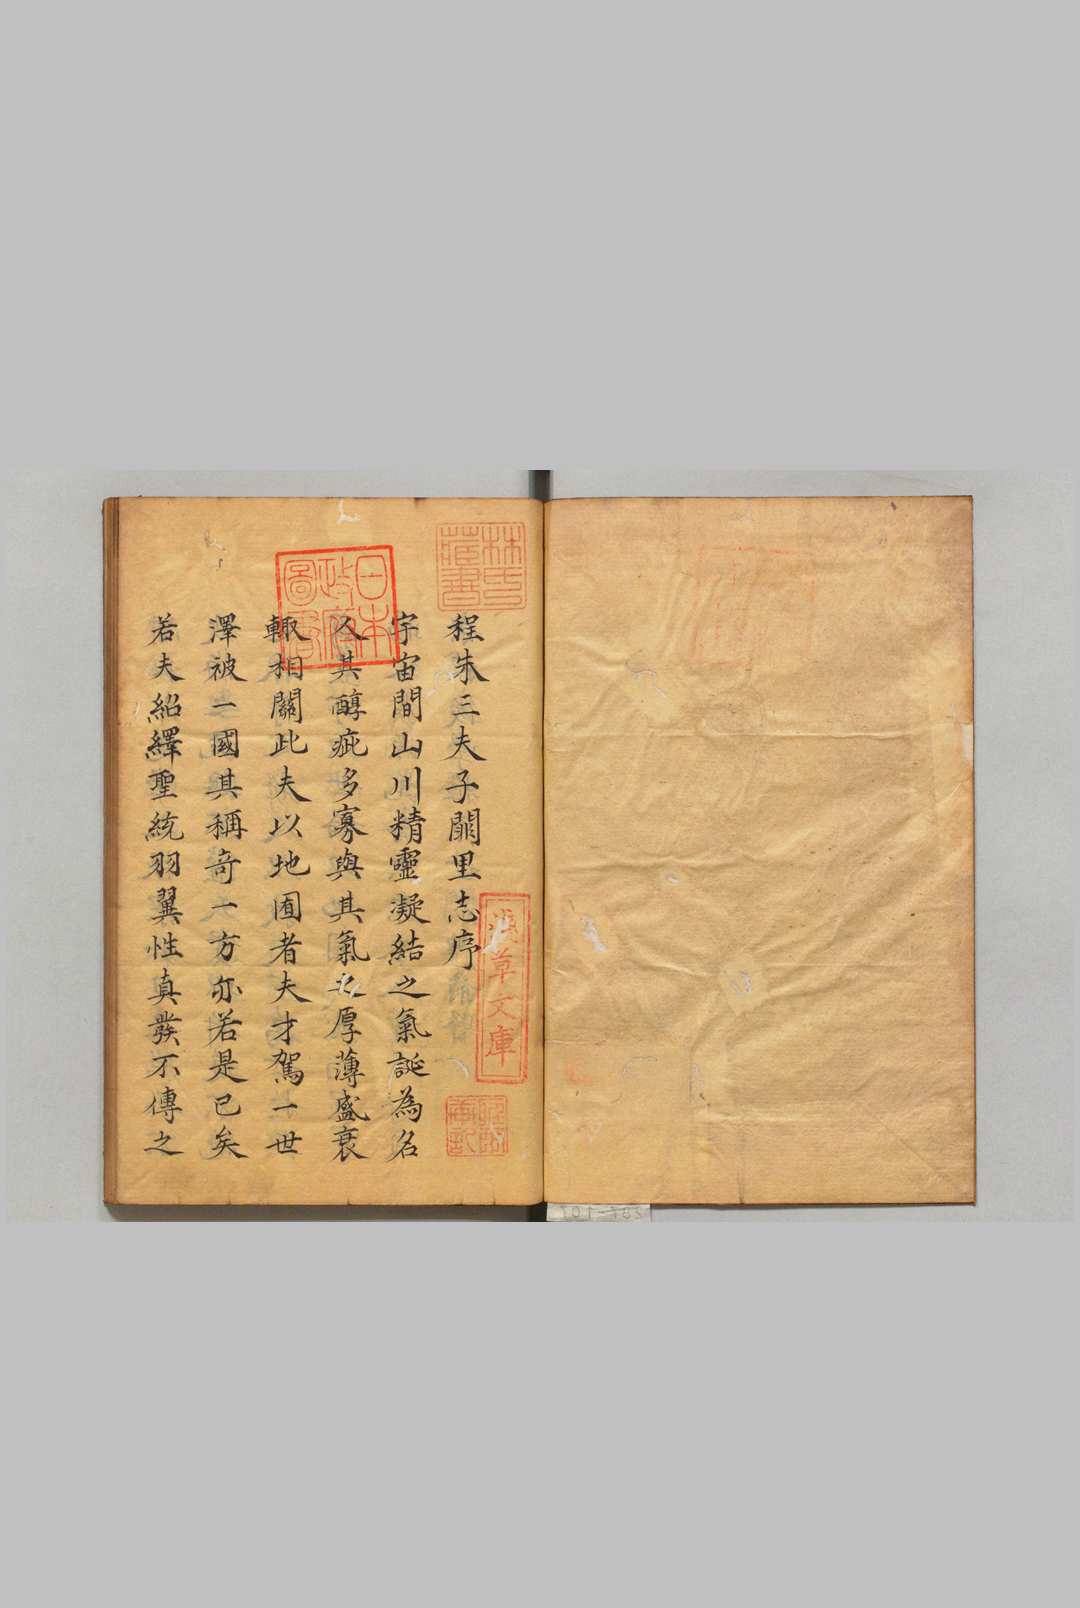 程朱三夫子闕里志序
宇宙間山川精靈凝結之氣誕為名
人其醇疵多寡與其氣之厚薄盛衰
輙相關此夫以地囿者夫才駕一世
澤被一國其稱奇一方亦若是已矣
若夫紹繹聖統羽翼性真發不傳之
林氏藏書
日本政府圖書
淺草文庫